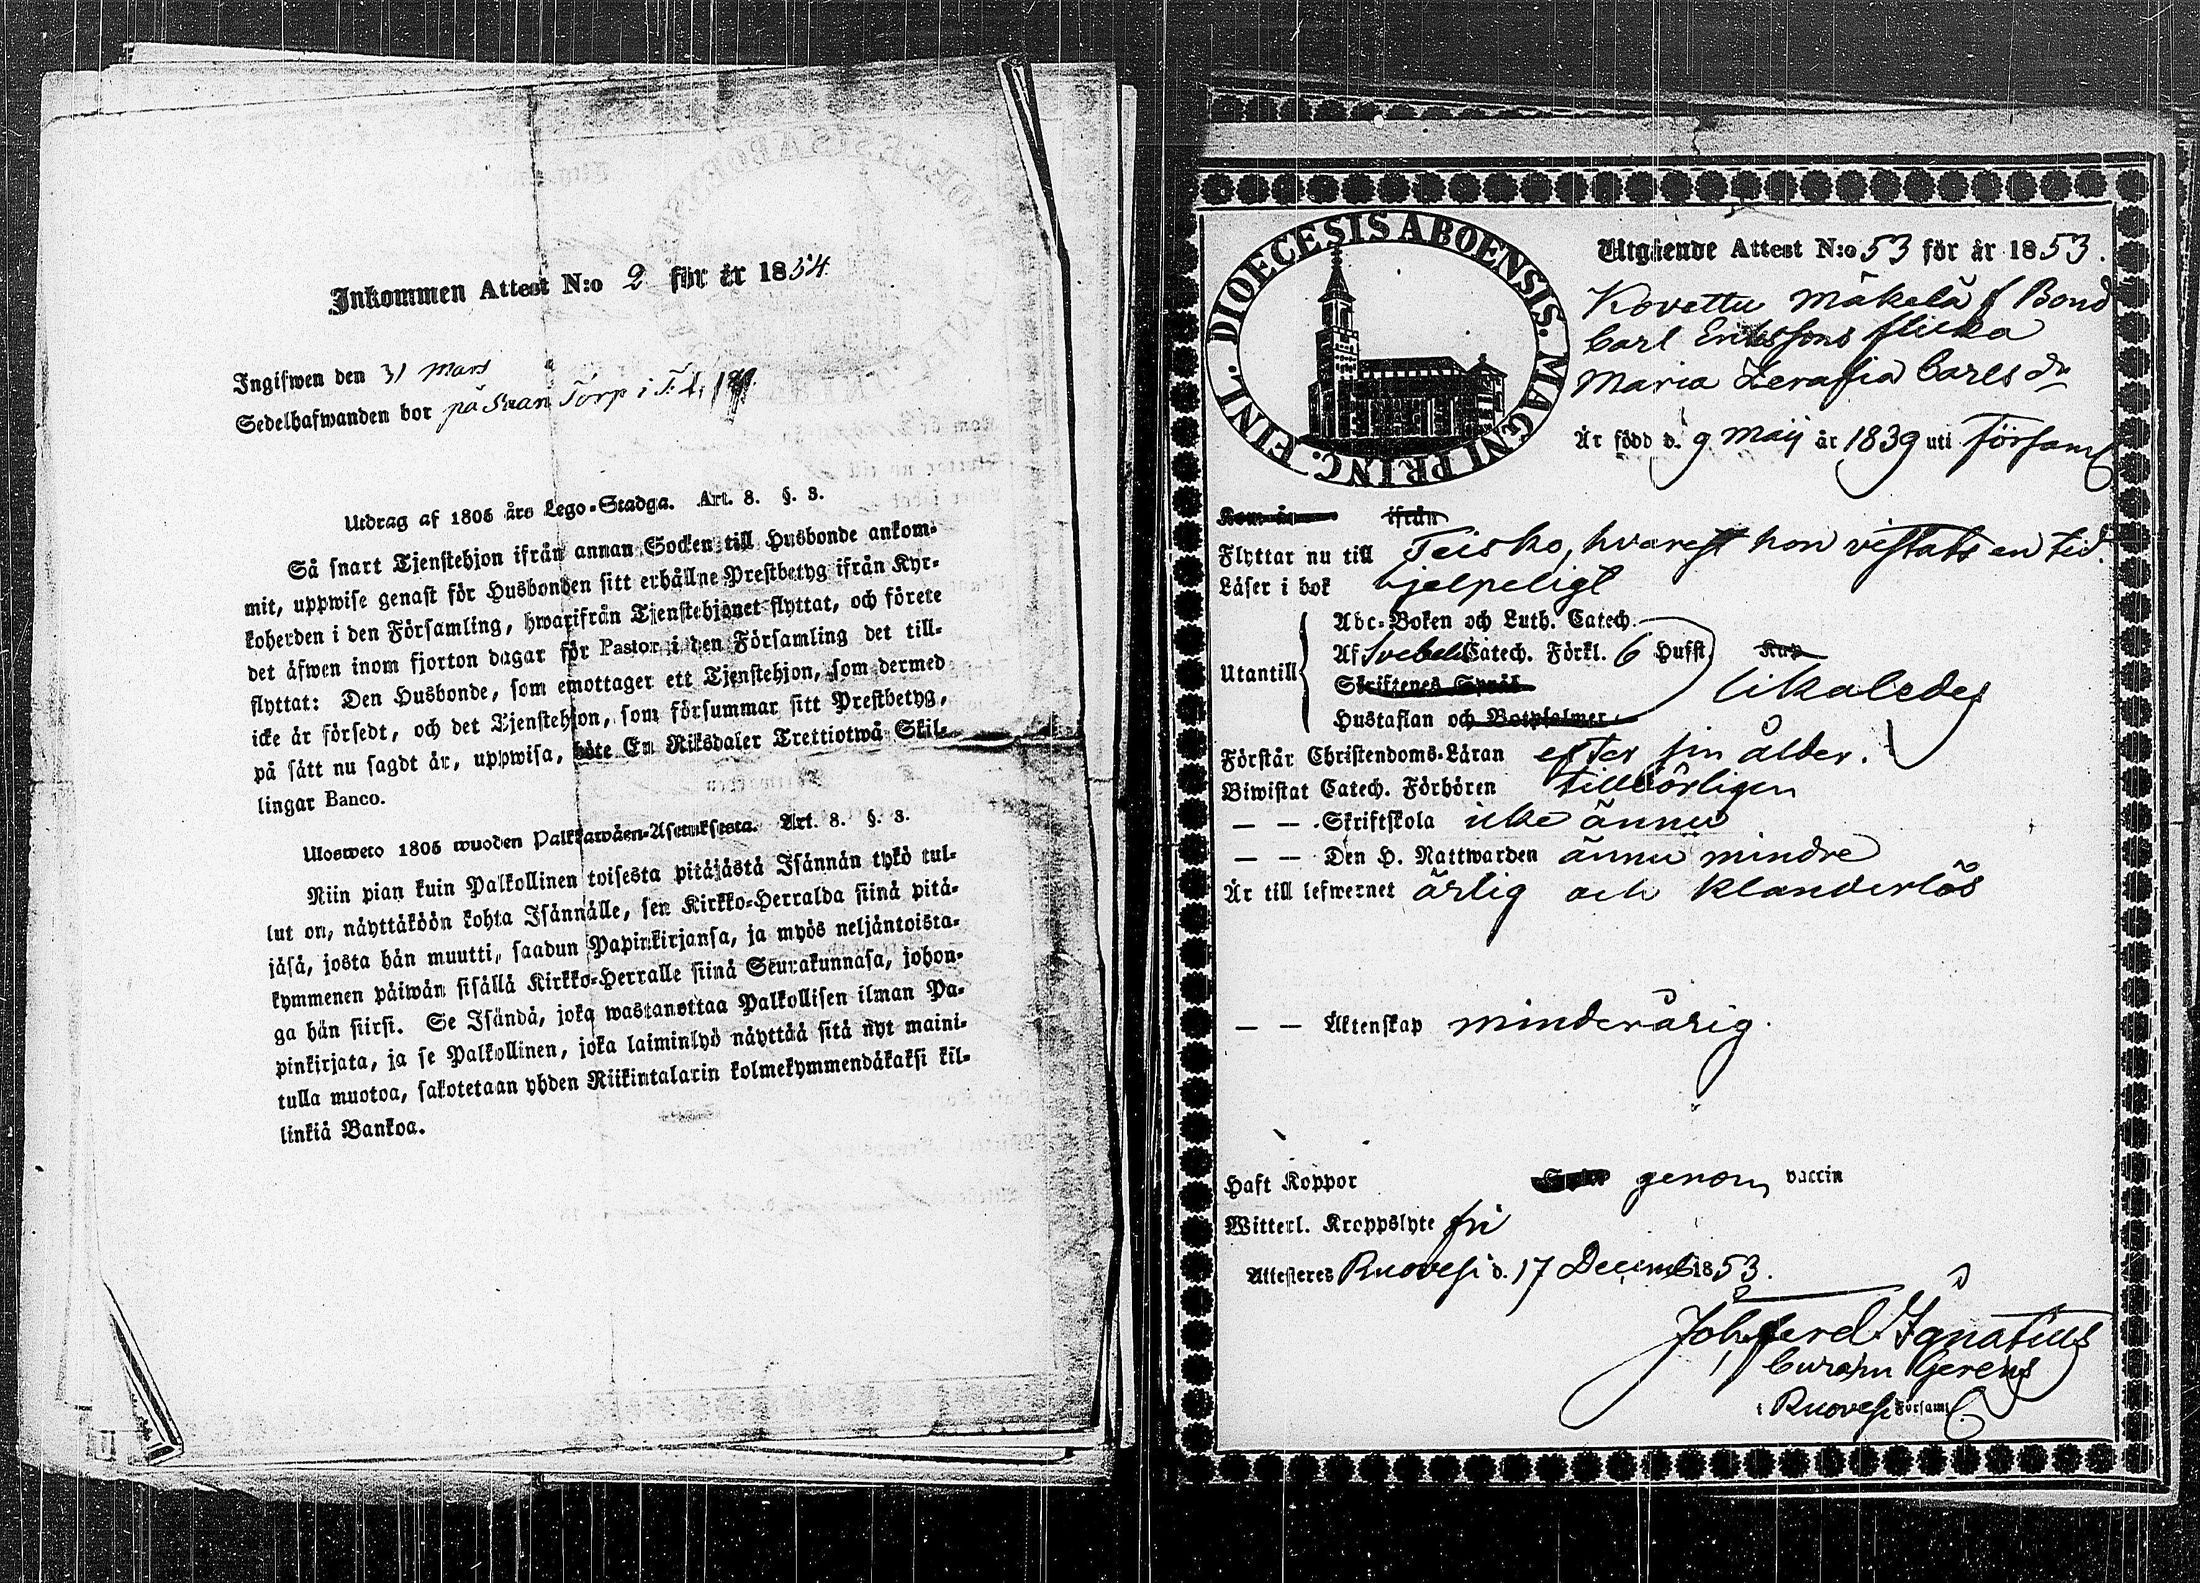 Inkommen Attest N:o 2 för år 1854.
Ingifwen den 31 Mars
Sedelhafwanden bor på Torp i
Utdrag af 1805 års Lego-Stadga. Art. 8. §. 3.
Så snart Tjenstehjon ifrån annan Socken till Husbonde ankom-
mit, uppwise genast för Husbonden sitt erhållne Prestbetyg ifrån Kyr-
koherden i den Församling, hwarifrån Tjenstehjonet flyttat, och förete
det äfwen inom fjorton dagar för Pastor i den Församling det till-
flyttat: Den Husbonde, som emottager ett Tjenstehjon, som dermed
icke är försedt, och det Tjenstehjon, som försummar sitt Prestbetyg,
på sätt nu sagdt är, uppwisa, böte En Riksdaler Trettiotwå Skil-
lingar Banco.
Ulosweto 1805 wuoden Palkkawäen-Asetuksesta. Art. 8. §. 3.
Niin pian kuin Palkollinen toisesta pitäjästä Isännän tykö tul-
lut on, näyttäköön kohta Isännälle, sen Kirkko-Herralda siinä pitä-
jäsä, josta hän muutti, saadun Papinkirjansa, ja myös neljäntoista-
kymmenen päiwän sisällä Kirkko-Herralle siinä Seurakunnasa, johon-
ga hän siirsi. Se Isändä, joka wastanottaa Palkollisen ilman Pa-
pinkirjata, ja se Palkollinen, joka laiminlyö näyttää sitä nyt maini-
tulla muotoa, sakotetaan yhden Riikintalarin kolmekymmendäkaksi kil-
linkiä Bankoa.
DIOECESIS ABOENSIS. MAGNI PRINC. FINL.
Utgående Attest N:o 53 för år 1853.
Kovettu Mäkelä f Bond
Carl Erikssons flicka
Maria Serafia Carls dr
Är född d. 9 Maij år 1839 uti Församl
Kom år ifrån
Flyttar nu till Teisko, hvarest hon vistats en tid.
Läser i bok hjelpeligt
Utantill
Abc-Boken och Luth. Catech.
Af Svebelii Catech. Förkl. 6 Hufst. Kap
Skriftenes Språk
Hustaflan och Botpsalmer
likaledes
Förstår Christendoms-Läran efter sin ålder.
Biwistat Catech. Förhören tillbörligen
— — Skriftskola icke ännu
— — Den H. Nattwarden ännu mindre
Är till lefwernet ärlig och klanderlös
— — Äktenskap minderårig.
Haft Koppor genom vaccin
Witterl. Kroppslyte fri
Attesteres Ruovesi d. 17 Decemb 1853.
Joh. Ferd. Ignatius
Curam Gerens
i Ruovesi Församl